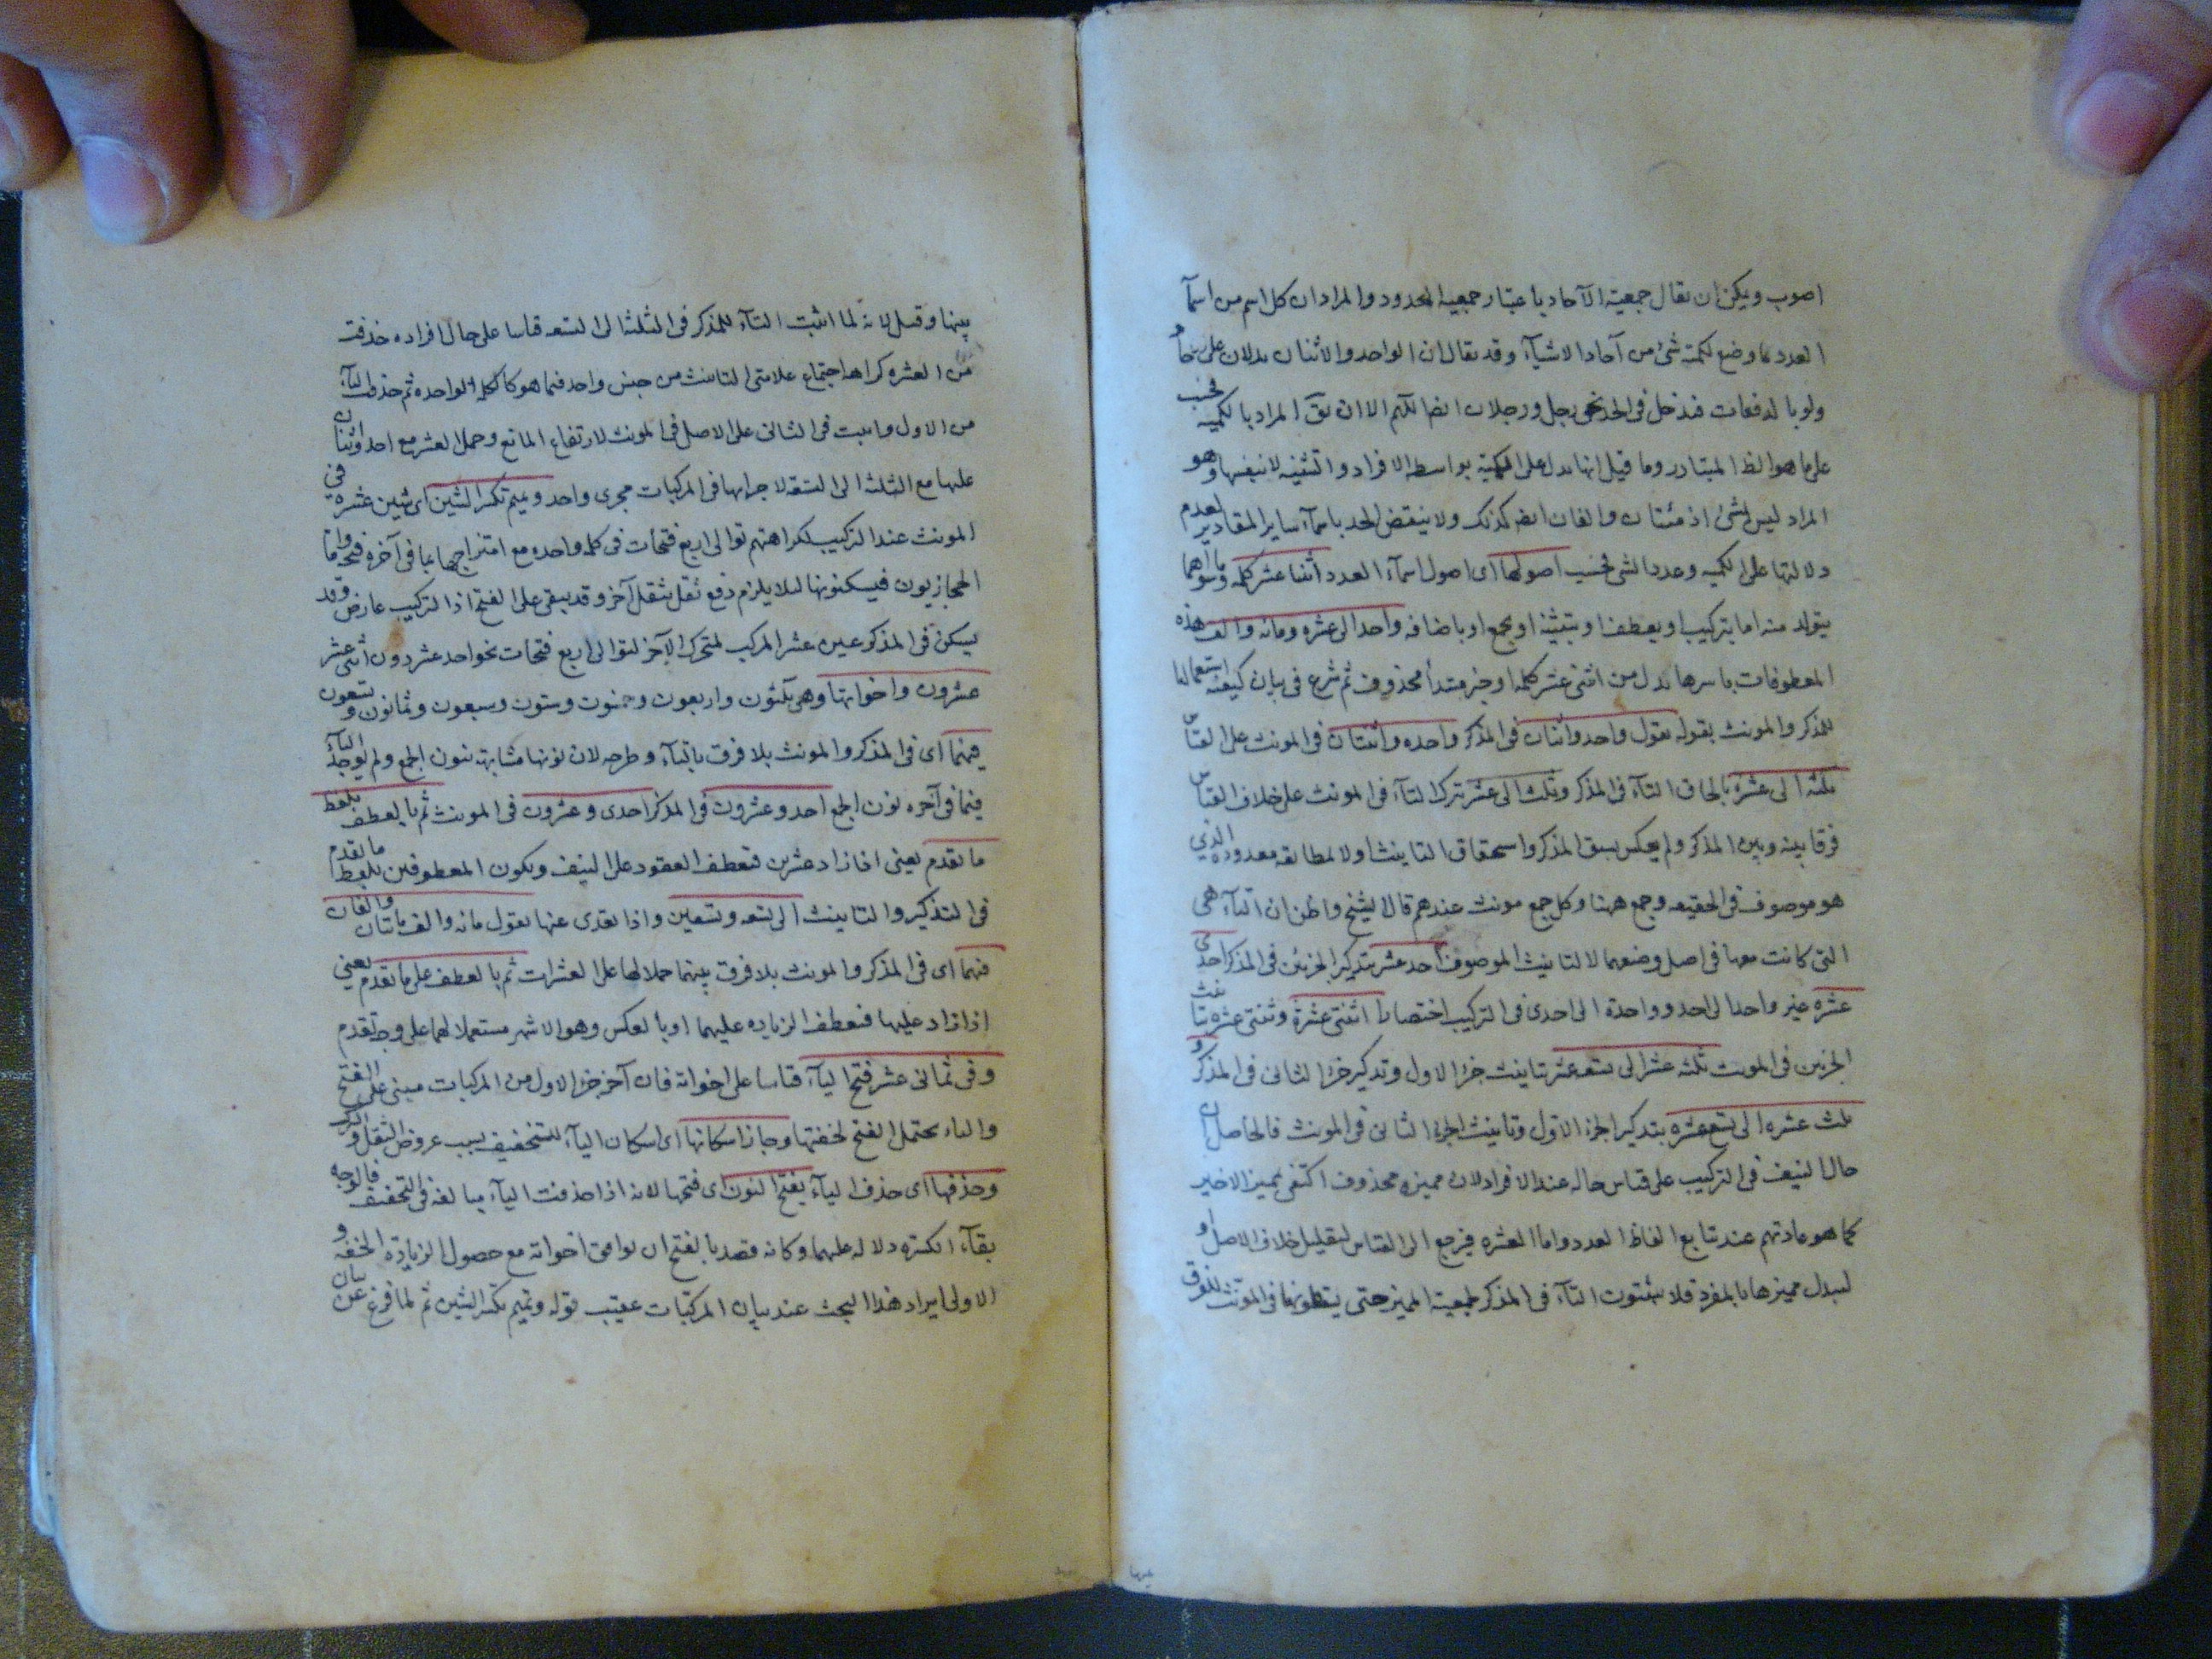 اصوب ويمكن ان يقال جمعية الآحاد باعتبار جمعية المعدود والمراد ان كل اسم من اسمآ
العدد ما وضع لكمية شئ من آحاد الاشيآء وقد يقال ان الواحد والاثنان يدلان على
ولو بالدفعات فيدخل فى الحد نحو رجل ورجلان المراد بالكمية فحسب
على ما هو الظ المتبادر وما قيل انها يدل على الكمية بواسطه الافراد والتثنيه لا بنفسها وهو
المراد ليس بشئ اذ مئتان والفان ايضا كذلك ولا ينتقض الحد باسمآء ساير المقادير لعدم
دلالتها على الكميه وعدد الشئ فحسب اصولها اى اصول اسمآء العدد اثنتا عشر كلمة وما سواهما
يتولد منه اما بتركيب او بعطف او بتثنية او بجمع او باضافه واحد الى عشره ومائه والف هذه
المعطوفات باسرها بدل من اثنتى عشر كلمة او خبر مبتدأ محذوف ثم شرع فى بيان كيفية استعمالها
للمذكر والمونث بقوله تقول واحد واثنان فى المذكر واحده واثنتان فى المونث على القياس
ثلثه الى عشرة بالحاق التآء فى المذكر وثلث الى عشر بترك التآء فى المونث على خلاف القياس
فرقا بينه وبين المذكر ولم يعكس لسبق المذكر واستحقاق التانيث اولا لمطابقه معدوده الذي
هو موصوف فى الحقيقه وجمع ههنا وكل جمع مونث عندهم قال الشيخ واظن ان التآء هى
التى كانت معها فى اصل وضعها لا لتانيث الموصوف احد عشر بتذكير الجزئين فى المذكر احدى
عشره غير واحد الى احد وواحدة الى احدى فى التركيب اختصارا اثنتى عشرة وثنتى عشره بتانيث
الجزئين فى المونث ثلثه عشر الى تسعه عشر بتانيث جزء الاول وتذكير جزء الثانى فى المذكر و
ثلث عشره الى تسع عشره بتذكير الجزء الاول وتانيث الجزء الثانى فى المونث فالحاصل ان
حال النيف فى التركيب على قياس حاله عند الافراد لان مميزه محذوف اكتفى بمميز الاخير
كما هو عادتهم عند تتابع الفاظ العدد واما العشره فيرجع الى القياس لتقليل خلاف الاصل او
لتبدل مميزها بالمفرد فلا يثبتون التآء فى المذكر لجمعية المميز حتى يسقطونها فى المونث للفرق
بينها وقيل لانه لما اثبت التآء للمذكر فى الثلثة الى التسعه قياسا على حال افراده حذفت
من العشره كراهة اجتماع علامتى التانيث من جنس واحد فيما هو كالكلمة الواحده ثم حذفت التآء
من الاول واثبت فى الثانى على الاصل فى المونث لارتفاع المانع وحمل العشر مع احد واثنان
عليها مع الثلثة الى التسعة لاجرائها فى المركبات مجرى واحد وتميم تكسر الشين اى شين عشره فى
المونث عند التركيب لكراهتهم توالى اربع فتحات فى كلمة واحده مع امتزاجها بما فى آخره فتحه واما
الحجازيون فيسكنونها لئلا يلزم دفع ثقل بثقل آخر وقد يبقى على الفتح اذ التركيب عارض وقد
يسكن فى المذكر عين عشر المركب لمتحرك الآخر لتوالى اربع فتحات نحو احد عشر دون اثنى عشر
عشرون واخواتها وهى ثلثون واربعون وخمسون وستون وسبعون وثمانون وتسعون
فيهما اى فى المذكر والمونث بلا فرق باتيآء وطرحه لان نونها مشابهة بنون الجمع ولم يوجد التآء
فيما فى آخره نون الجمع احد وعشرون فى المذكر احدى وعشرون فى المونث ثم بالعطف بلفظ
ما تقدم يعنى اذا زاد عشرين فتعطف العقود على النيف ويكون المعطوفين بلفظ ما تقدم
فى التذكير والتانيث الى تسعه وتسعين واذا تعدى عنها تقول مائه والف مائتان والفان
فيهما اى فى المذكر والمونث بلا فرق بينهما حملا لها على العشرات ثم بالعطف على ما تقدم يعنى
اذا زاد عليها فتعطف الزياده عليهما او بالعكس وهو الاشهر مستعملا لهما على وجه تقدم
وفى ثمانى عشر فتح اليآء قياسا على اخواته فان آخر جزء الاول من المركبات مبنى على الفتح
والياء يحتمل الفتح لخفتها وجاز اسكانها اى اسكان اليآء للتخفيف بسبب عروض الثقل والتركيب
وحذفها اى حذف اليآء بفتح النون اى فتحها لانه اذا حذفت اليآء مبالغه فى التخفيف فالوجه
بقآء الكسره دلالة عليها وكانه قصد بالفتح ان يوافق اخواته مع حصول الزيادة الخفة و
الاولى ايراد هذا البحث عند بيان المركبات عقيب قوله وتميم تكسر الشين ثم لما فرغ عن بيان